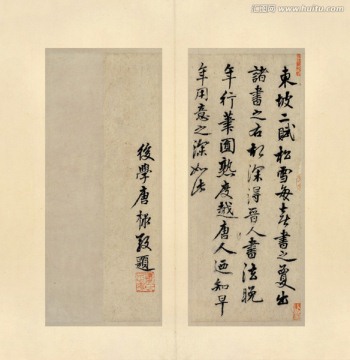 東坡二賦松雪每喜書之夐出
諸書之右於深得晉人書法晚
年行筆圓熟度越唐人迺知早
年用意之深如法
後學唐 題